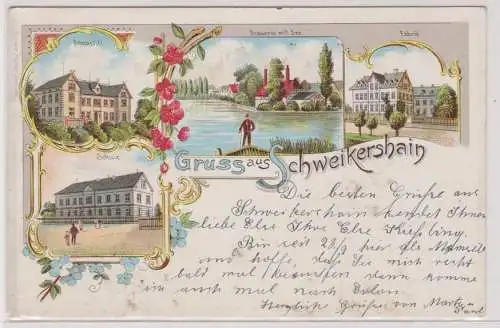 Brauerei mit See
Fabrik
Schule
Gruss aus Schweikershain
Die besten Grüße aus
Schweikershain sendet Ihnen
liebe Else Ihre Else Kießling.
Bin seit 28/5 hier als Mamsell
und hoffe, daß Sie mich recht
bald mal besuchen, dann komme
ich auch mal nach
Herzliche Grüße von